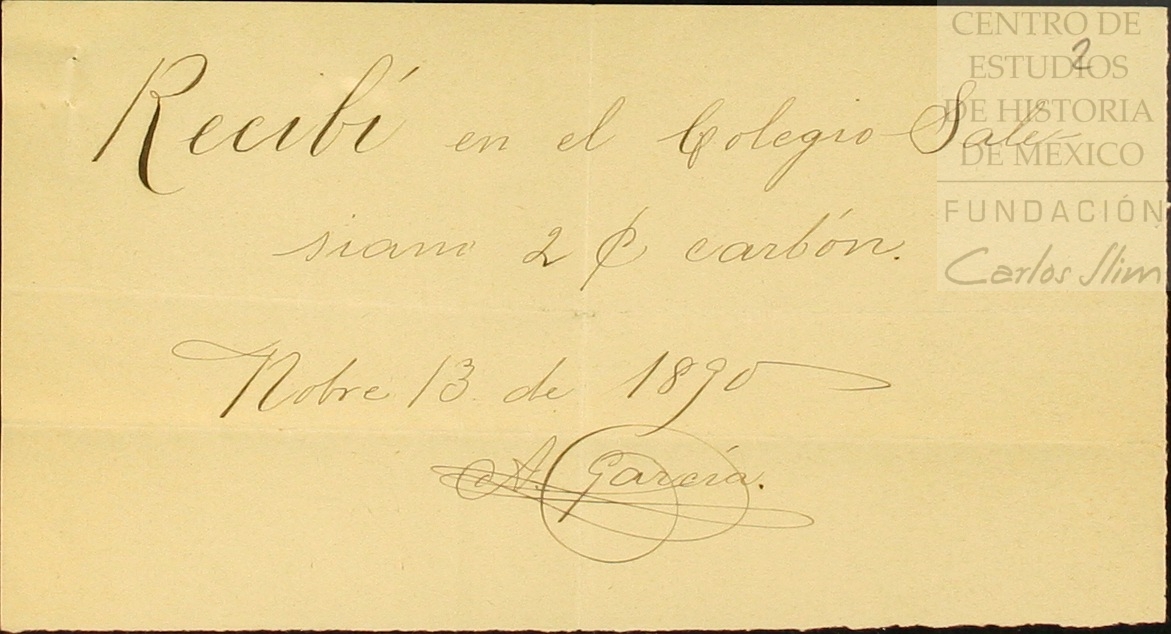 CENTRO DE
ESTUDIOS
DE HISTORIA
DE MÉXICO
FUNDACIÓN
Carlos Slim
2
Recibí en el Colegio Sale-
siano 2 ₵ carbón.
Nobre 13 de 1890
A. García.